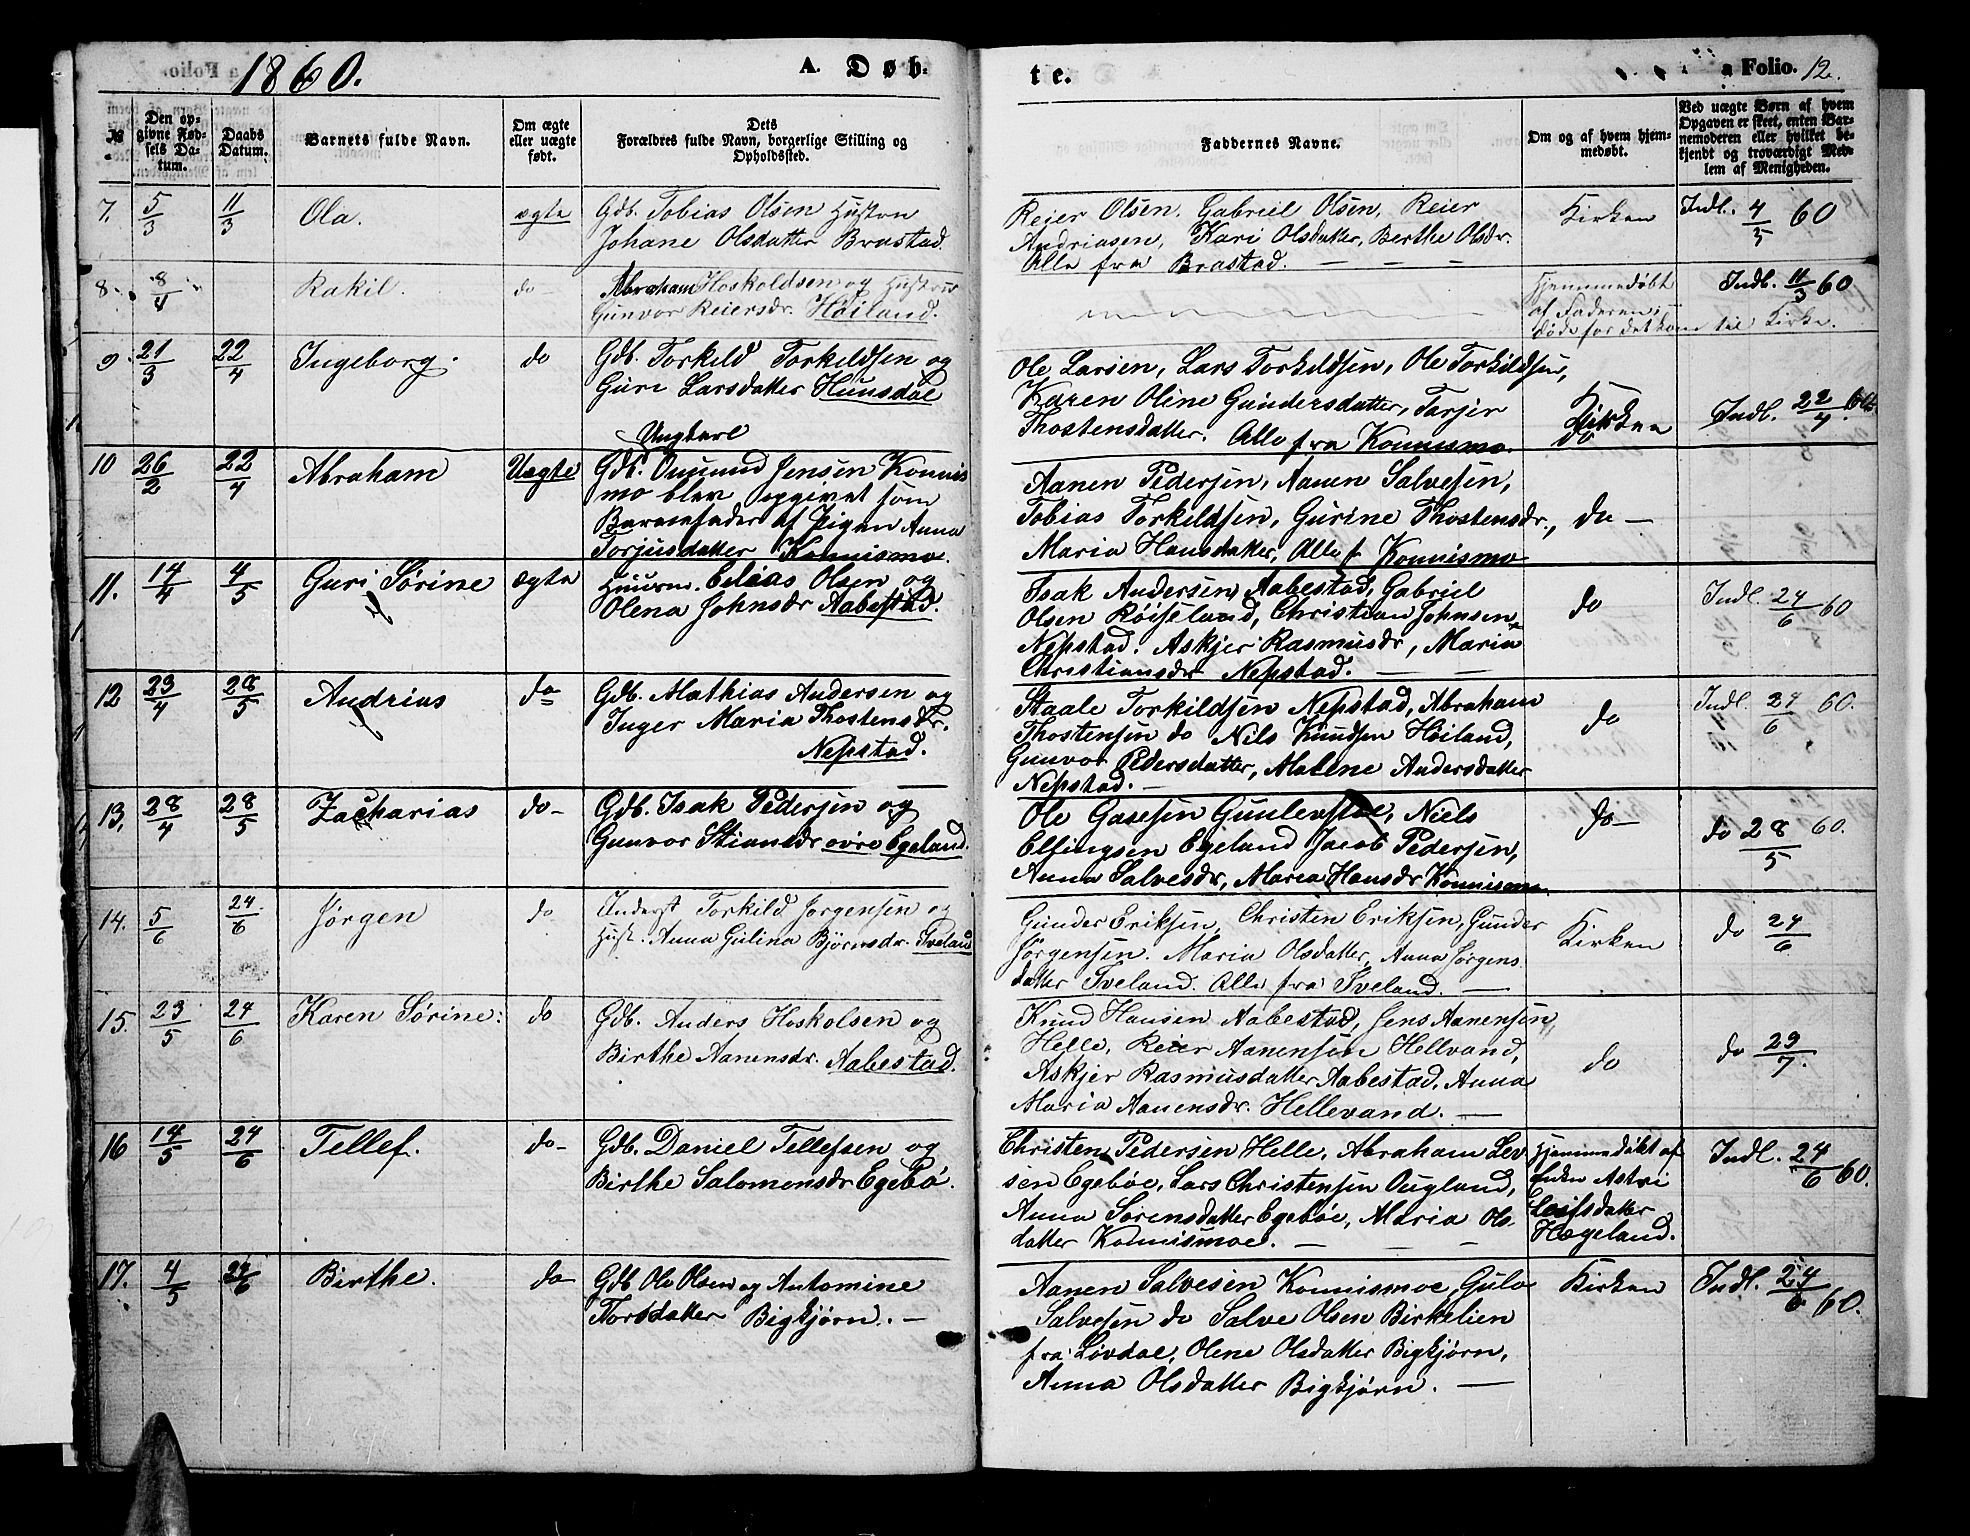 1860.
A. Døb-
te.
a Folio. 12.
№
Den op-
givne Fød-
sels Da-
tum.
Daabs
Datum.
Barnets fulde Navn.
Om ægte
eller uægte
født.
Dets
Forældres fulde Navn, borgerlige Stilling og
Opholdssted.
Faddernes Navne.
Om og af hvem hjem-
medøbt.
Ved uægte Børn af hvem
Opgaven er skeet, enten Bar-
nemoderen eller hvilket be-
kjendt og troværdigt Med-
lem af Menigheden.
7. 5/3 11/3 Ola. ægte Gdb. Tobias Olsen Hustru
Johane Olsdatter Brastad.
Reier Olsen. Gabriel Olsen, Reier
Andriasen, Kari Olsdatter, Berthe Olsdr.
Alle fra Brastad.
Kirken Indl. 4/5 60
8. 8/4 Rakil. do Abraham Hoskoldsen og Hustru
Gunvor Reiersdr. Høiland.
Hjemmedøbt
af Faderen;
døde før det kom til Kirke.
Indl. 11/3 60
9 21/3 22/4 Ingeborg. do Gdb. Torkild Torkildsen og
Guri Larsdatter Huusdal
Ole Larsen, Lars Torkildsen, Ole Torkildsen,
Karen Oline Gundersdatter, Torjer
Thostensdatter. Alle fra Konnismo.
Kirken
do
Indl. 22/4 60.
10 26/2 22/4 Abraham Uægte Ungkarl
Gdb. Omund Jensen Konnis
mo blev opgivet som
Barnefader af Pigen Anna
Torjusdatter Konnismo.
Aanen Pedersen, Aanen Salvesen,
Tobias Torkildsen, Gurine Thostensdr.,
Maria Hansdatter, Alle f Konnismo
do
11. 14/4 4/5 Guri Sørine ægte Huurm. Elias Olsen og
Olena Johnsdr Aabestad.
Isak Andersen Aabestad, Gabriel
Olsen Røiseland, Christian Johnsen
Nepstad. Askjer Rasmusdr, Maria
Christiansdr Nepstad.
do Indl. 24/6 60
12 23/4 28/5 Andrias do Gdb. Mathias Andersen og
Inger Maria Thostensdr.
Nepstad.
Staale Torkildsen Nepstad, Abraham
Thostensen do Nils Knudsen Høiland,
Gunvor Pedersdatter, Malene Andersdatter
Nepstad.
do Indl. 24/6 60.
13. 28/4 28/5 Zacharias do Gdb. Isak Pedersen og
Gunvor Stiansdr øvre Egeland.
Ole Gasesen Gunlevsdal, Niels
Ellingsen Egeland Jacob Pedersen,
Anna Salvesdr, Maria Hansdr Konnismo.
do do 28/5 60.
14. 5/6 24/6 Jörgen do Inderst Torkild Jørgensen og
Hust. Anna Gulina Bjørnsdr. Tveland
Gunder Eriksen, Christen Eriksen, Gunder
Jørgensen. Maria Olsdatter, Anna Jørgens
datter Tveland. Alle fra Tveland.
Kirken do 24/6
15. 23/5 24/6 Karen Sørine: do Gdb. Anders Hoskolsen og
Birthe Aanensdr. Aabestad.
Knud Hansen Aabestad, Jens Aanensen,
Helle, Reier Aanensen Hellvand,
Askjer Rasmusdatter Aabestad, Anna
Maria Aanensdr. Hellevand.
do do 29/7.
16 14/5 24/6 Tellef. do Gdb. Daniel Tellefsen og
Birthe Salomonsdr Egebö.
Christen Pedersen Helle, Abraham Lev
sen Egebøe, Lars Christensen Ougland,
Anna Sørensdatter Egebøe, Maria Ols
datter Konnismoe.
Hjemmedøbt af
Enken Astri
Leifsdatter
Hægeland.
Indl. 24/6 60.
17. 4/5 24/6 Birthe. do Gdb Ole Olsen og Antomine
Torsdatter Bigkjørn.
Aanen Salvesen Konnismoe, Gulo
Salvesen do Salve Olsen Birkelien
fra Løvdal, Olene Olsdatter Bigkjørn,
Anna Olsdatter Bigkjørn.
Kirken Indl. 24/6 60.